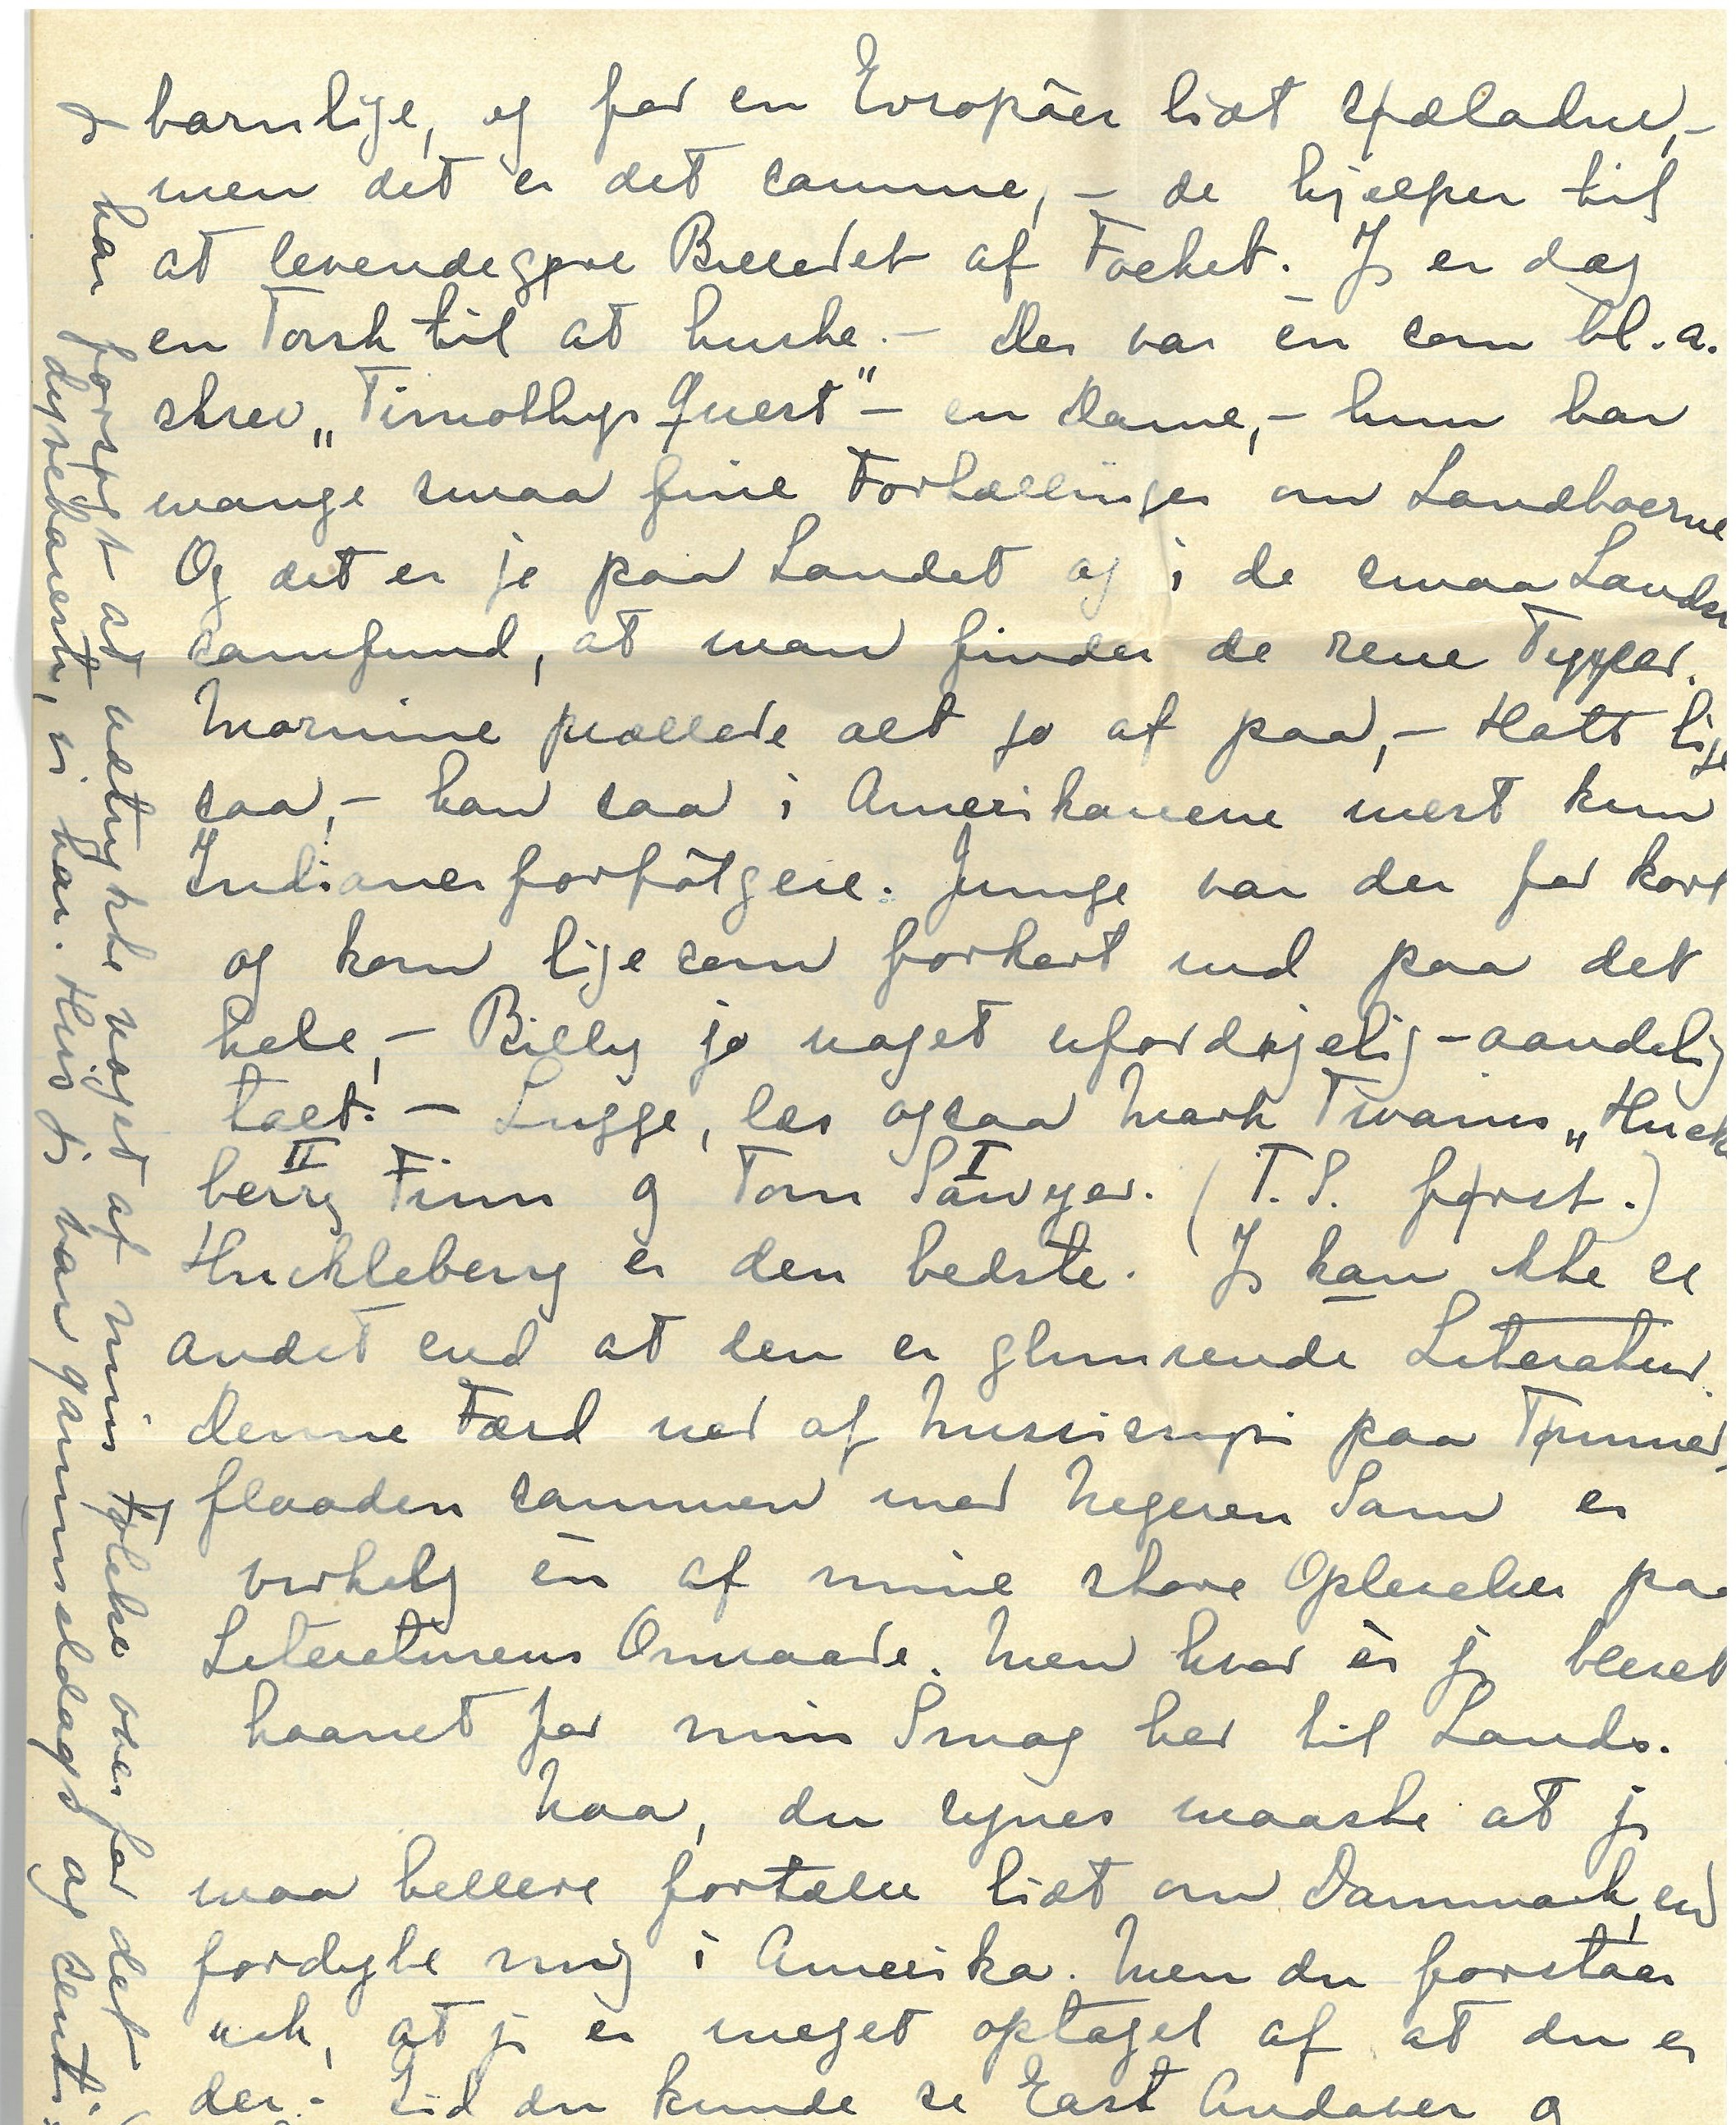 barnlige, og for en Evropäer lidt spæladne, –
men det er det samme, – de hjælper til
at levendegøre Billedet af Folket. Jeg er dog
en Torsk til at huske. – Der var èn som bl.a.
skrev „Timothys Quest” – en Dame, – hun har
mange smaa fine Fortællinger om Landboerne
Og det er jo paa Landet og i de smaa Lands
samfund, at man finder de rene Typper.
Mornine prællede alt jo af paa, – Hatt lige
saa, – han saa i Amerikanene mest kun
Indianerforfölgere. Junge var der for kort
og kom ligesom forkert ind paa det
hele, – Billy jo noget ufordøjelig – aandelig
talt. – Lugge, læs ogsaa Mark Twains „Huck
berry Finn II og Tom Sawyer I. (T.S. først.)
Huckleberry er den bedste. Jeg kan ikke se
andet end at den er glimrende Literatur.
Denne Færd ned af Missisippi paa Tømmer
flaaden sammen med Negeren Sam er
virkelig èn af mine store Oplevelser paa
Literaturens Omraade. Men hvor èr jeg blevet
haanet for min Smag her til Lands.
Naa, du synes maaske at jeg
maa hellere fortælle lidt om Danmark, end
fordybe mig i Amerika. Men du forstaar
nok, at jeg er meget optaget af at du er
der. – Gid du kunde se East Andover og
Jeg har forsøgt at udtrykke noget af min Følelse over for det
dyrebareste, vi har. Hvis jeg var gammeldags og senti-